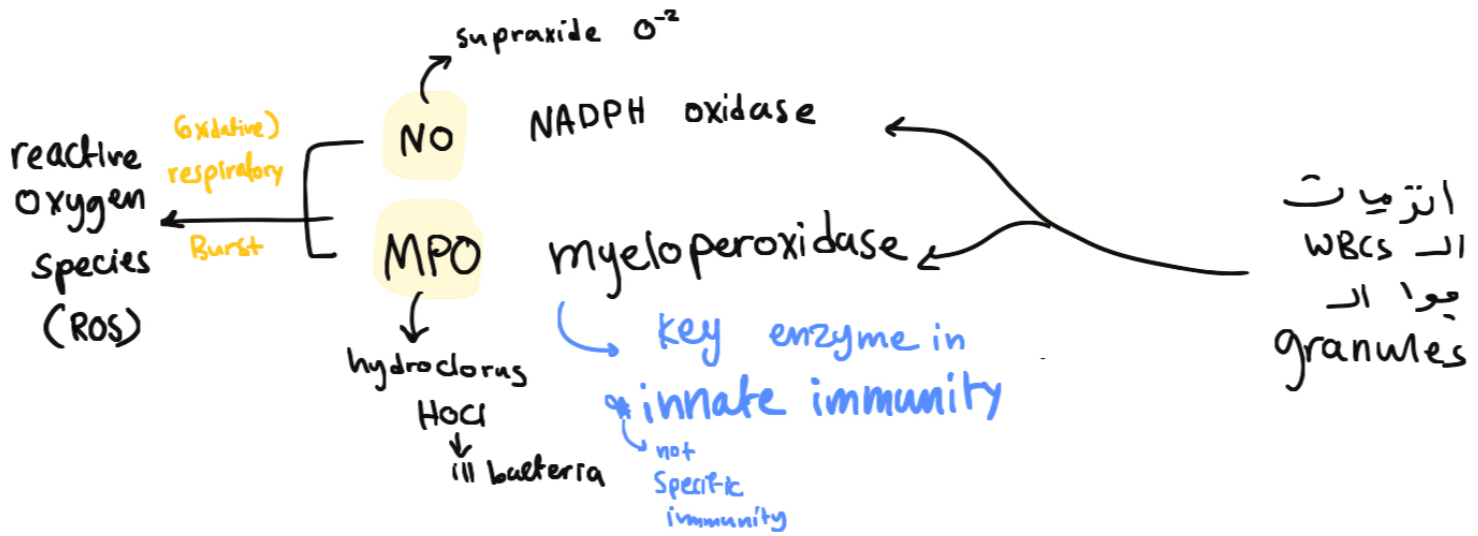 supraxide O⁻²
NO
NADPH oxidase
(oxidative)
respiratory
Burst
reactive
oxygen
species
(ROS)
MPO
myeloperoxidase
hydroclorus
HOCl
ill bacteria
key enzyme in
innate immunity
not
Specific
immunity
انزيمات
الـ WBCs
جوا الـ
granules